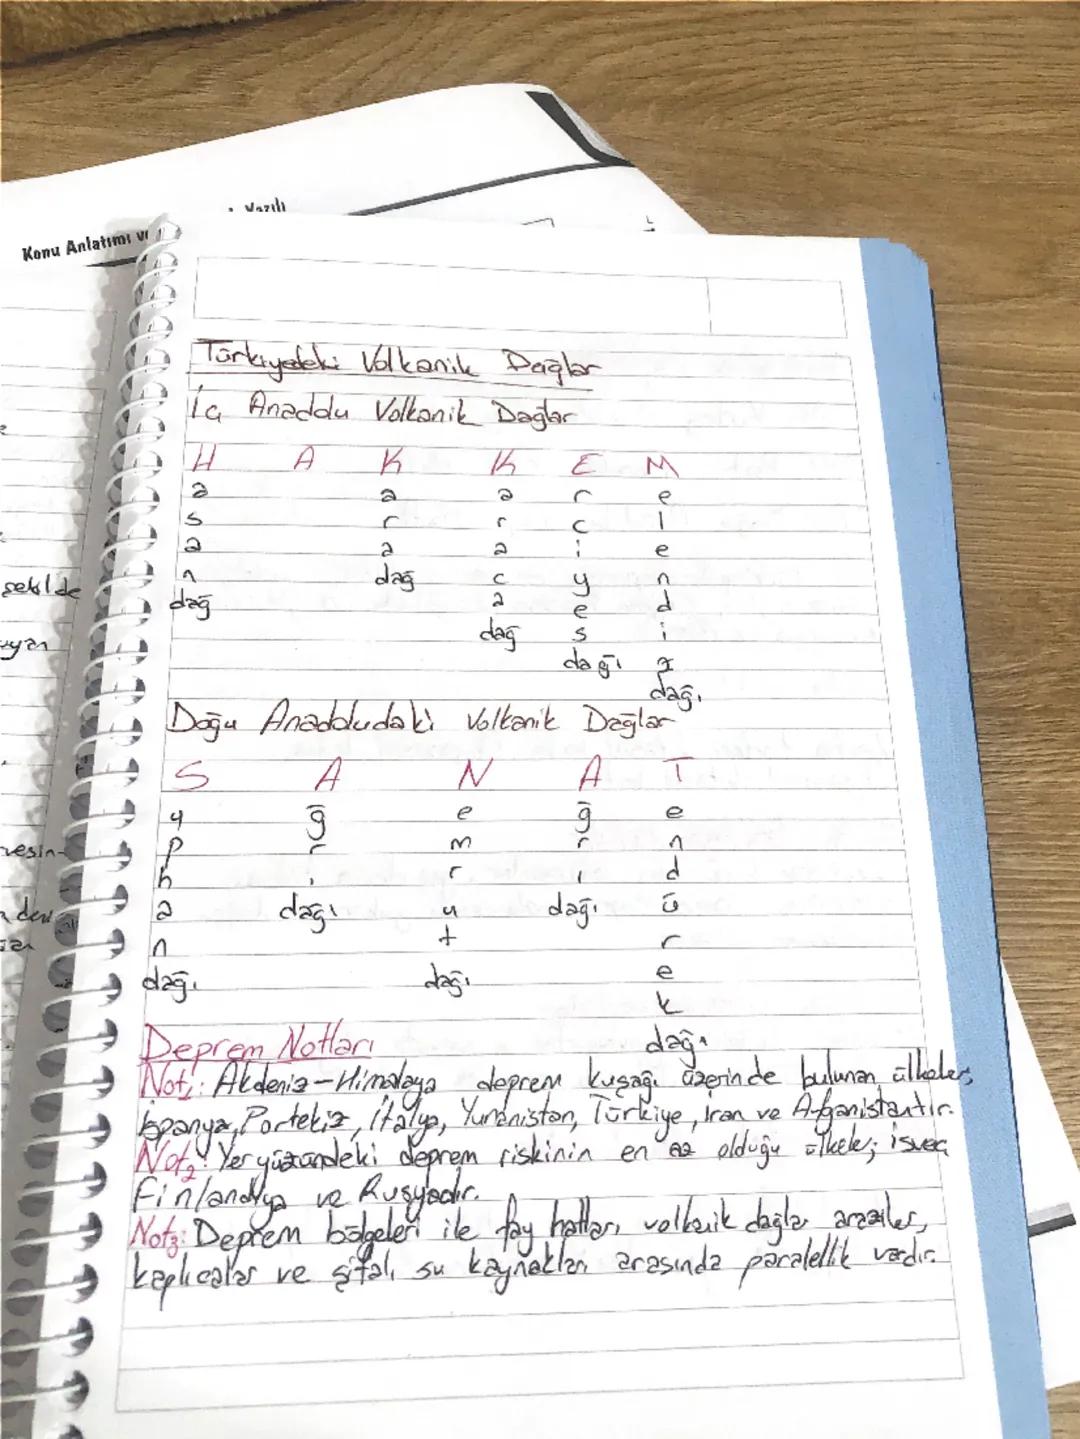 Yazılı
Konu Anlatımı ve
Türkiyedeki Volkanik Dağlar
İç Anadolu Volkanik Dağlar
H A K K E M
a a a r e
s r r c l
a a a i e
n dağ c y n
dağ a e d
dağ s i
dağı z
dağı
Doğu Anadoludaki Volkanik Dağlar
S A N A T
ü ğ e ğ e
p r m r n
h ı r ı d
a dağı u dağı ü
n t r
dağı dağı e
k
dağı
Deprem Notları
Not1: Akdeniz-Himalaya deprem kuşağı üzerinde bulunan ülkeler;
İspanya, Portekiz, İtalya, Yunanistan, Türkiye, İran ve Afganistantır.
Not2: Yeryüzündeki deprem riskinin en az olduğu ülkeler; isveç
Finlandiya ve Rusyadır.
Not3: Deprem bölgeleri ile fay hatları volkanik dağlar araziler,
kaplıcalar ve şifalı su kaynakları arasında paralellik vardır.
şekilde
uyan